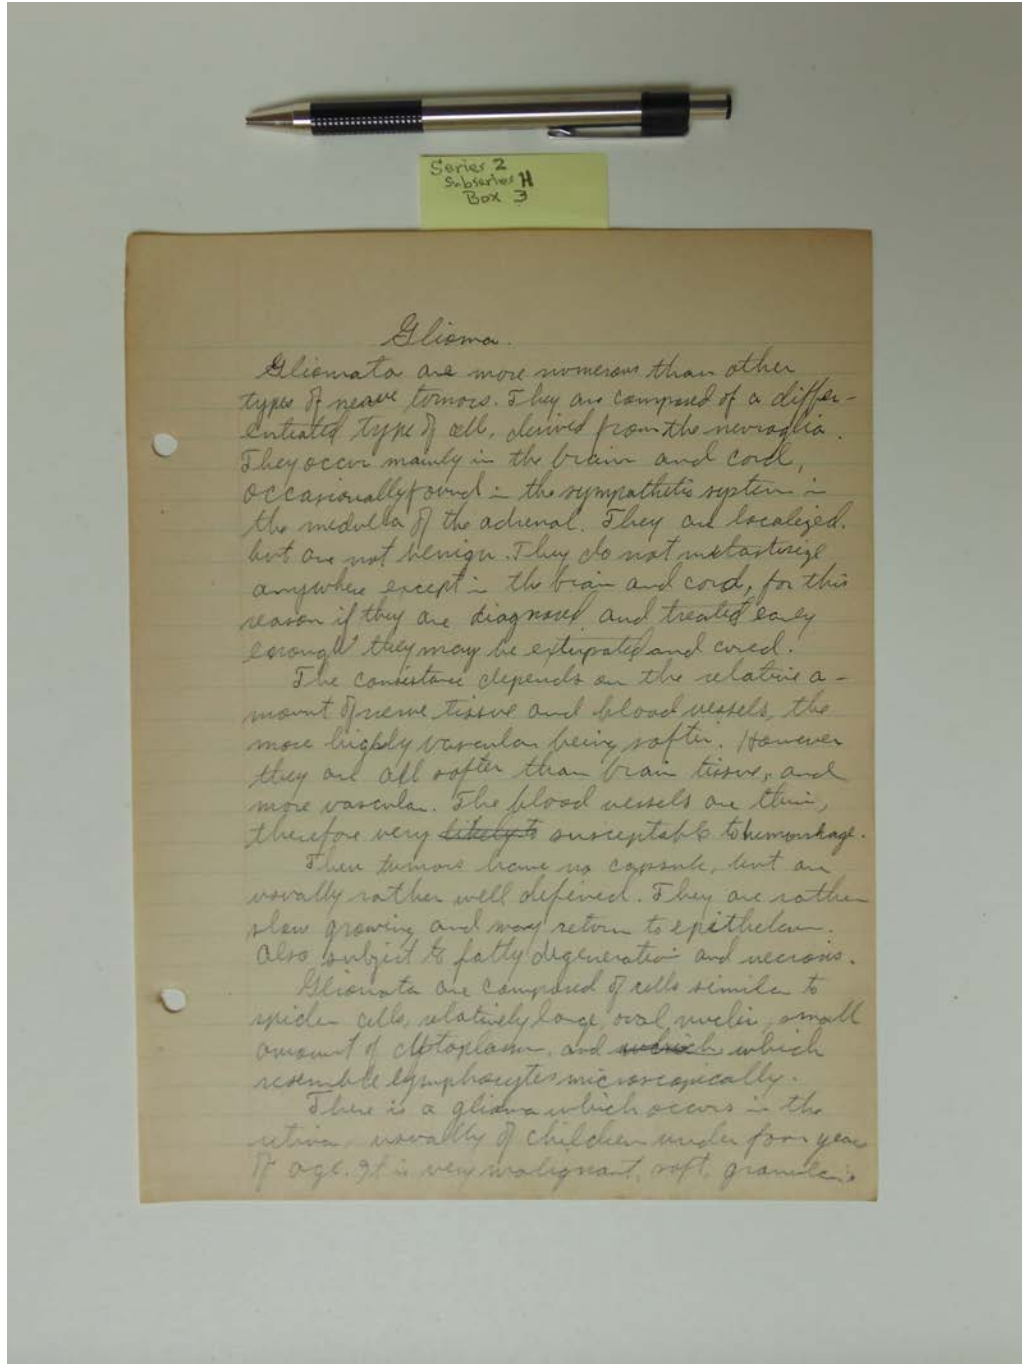 Series 2
Subseries H
Box 3
Glioma.
Gliomata are more numerous than other
types of nerve tumors. They are composed of a differ-
entiated type of cell, derived from the neuroglia.
They occur mainly in the brain and cord,
occasionally found in the sympathetic system in
the medulla of the adrenal. They are localized.
but are not benign. They do not metastisize
anywhere except in the brain and cord, for this
reason if they are diagnosed and treated early
enough they may be extirpated and cured.
The consistance depends on the relative a-
mount of nerve tissue and blood vessels, the
more highly vascular being softer. However
they are all softer than brain tissue, and
more vascular. The blood vessels are thin,
therefore very likely to susceptable to hemorrhage.
These tumors have no capsule, but are
usually rather well defined. They are rather
slow growing and may return to
Also subject to fatty degeneration and necrosis.
Gliomata are composed of cells similar to
spider cells, relatively large, oval nuclei, small
amount of cytoplasm, and which which
resemble lymphocytes microscopically.
There is a glioma which occurs in the
retina, usually of children under four years
of age. It is very malignant, soft,